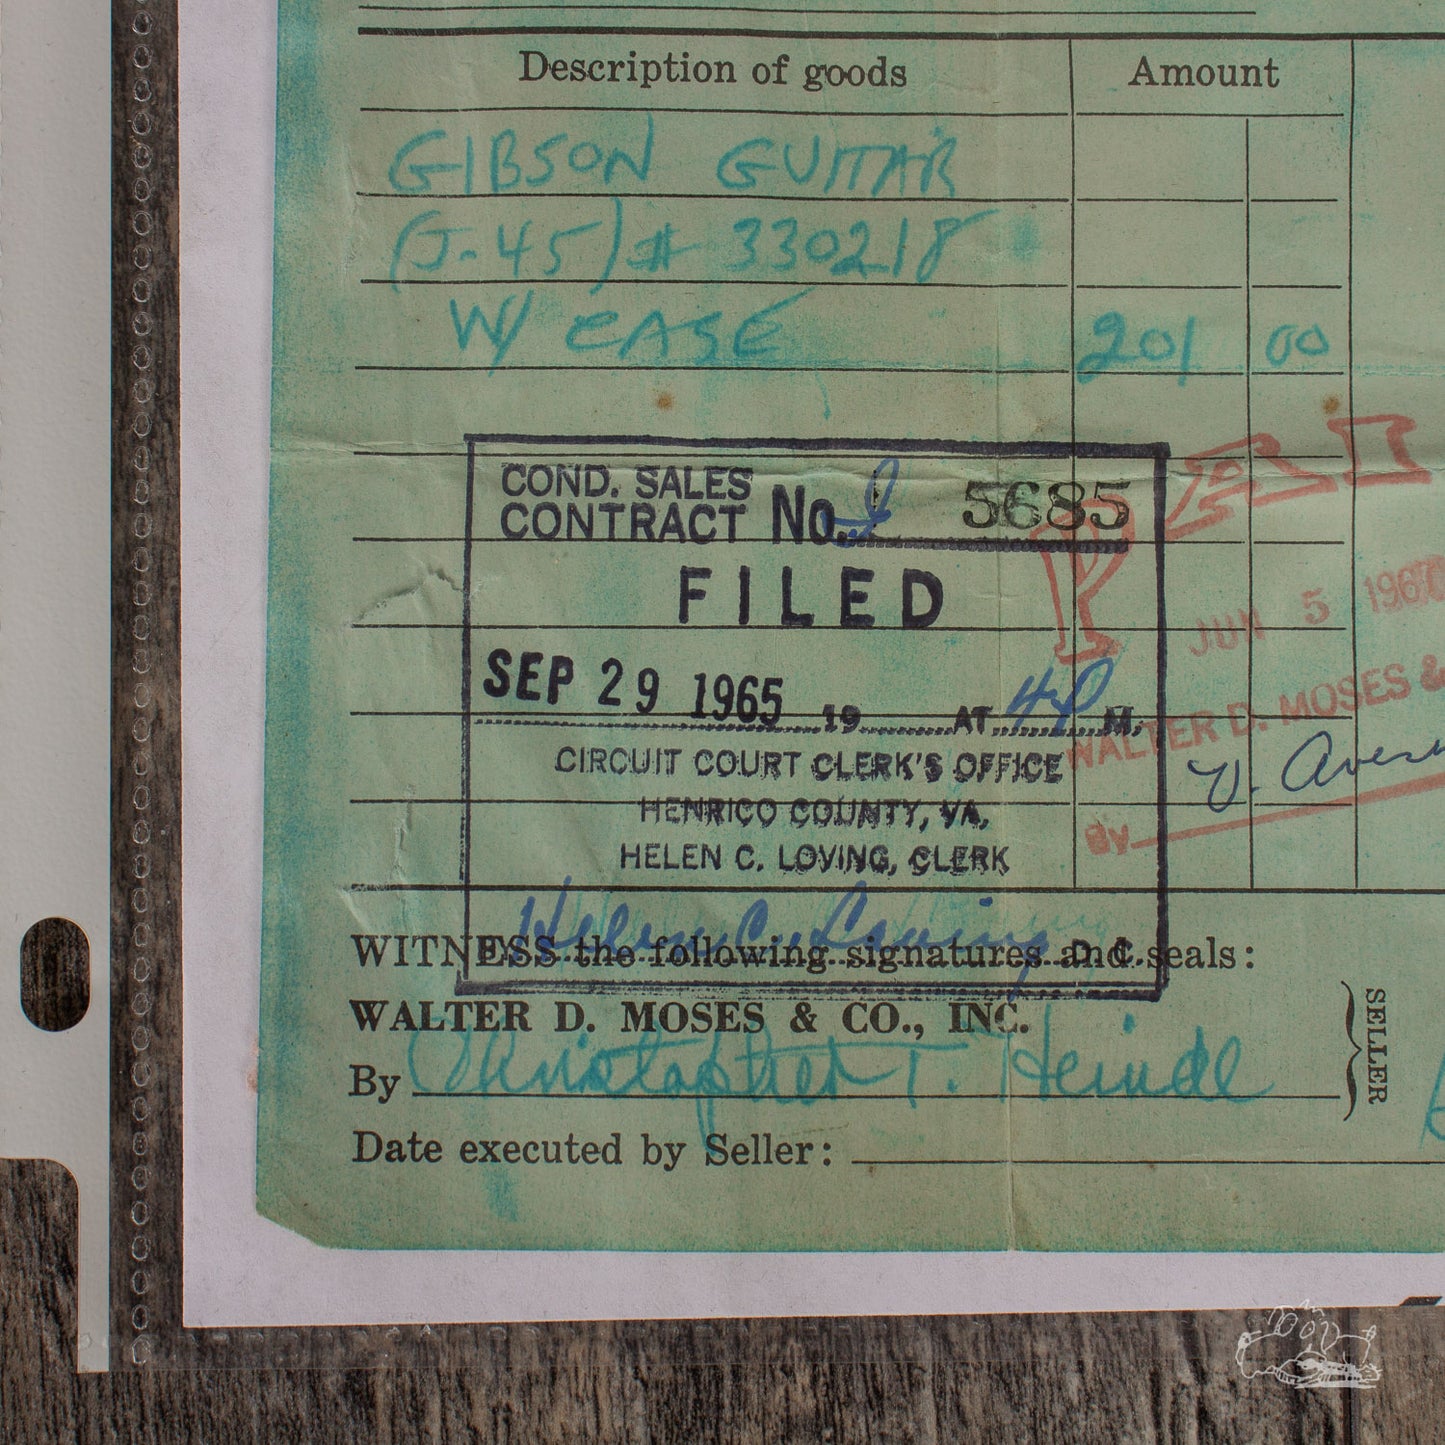 Description of goods Amount
GIBSON GUITAR
(J-45) # 330218
W/ CASE 201 00
COND. SALES
CONTRACT No. 5685
PAI
FILED
JUN 5 1967
SEP 29 1965 19 AT 4 P M.
WALTER D. MOSES &
CIRCUIT COURT CLERK'S OFFICE
HENRICO COUNTY, VA.
BY
HELEN C. LOVING, CLERK
Helen C. Loving D. C.
WITNESS the following signatures and seals:
WALTER D. MOSES & CO., INC.
By Christopher T. Heindl
SELLER
Date executed by Seller: